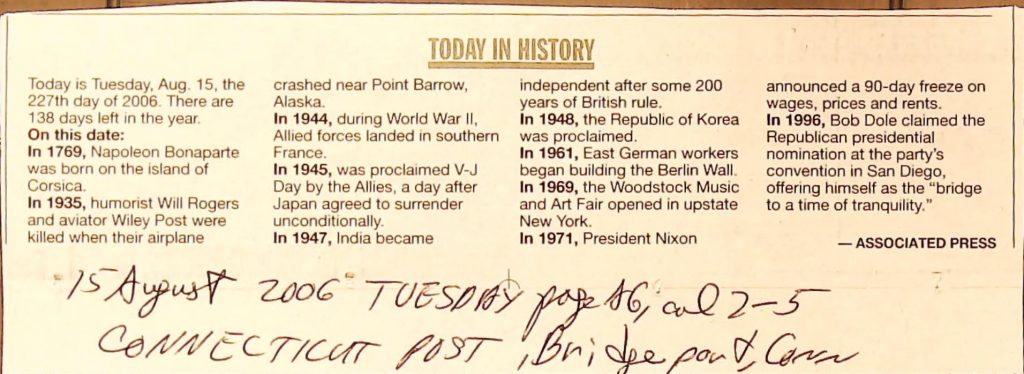 TODAY IN HISTORY
Today is Tuesday, Aug. 15, the
227th day of 2006. There are
138 days left in the year.
On this date:
In 1769, Napoleon Bonaparte
was born on the island of
Corsica.
In 1935, humorist Will Rogers
and aviator Wiley Post were
killed when their airplane
crashed near Point Barrow,
Alaska.
In 1944, during World War II,
Allied forces landed in southern
France.
In 1945, was proclaimed V-J
Day by the Allies, a day after
Japan agreed to surrender
unconditionally.
In 1947, India became
independent after some 200
years of British rule.
In 1948, the Republic of Korea
was proclaimed.
In 1961, East German workers
began building the Berlin Wall.
In 1969, the Woodstock Music
and Art Fair opened in upstate
New York.
In 1971, President Nixon
announced a 90-day freeze on
wages, prices and rents.
In 1996, Bob Dole claimed the
Republican presidential
nomination at the party's
convention in San Diego,
offering himself as the "bridge
to a time of tranquility."
— ASSOCIATED PRESS
15 August 2006 TUESDAY page A6, col 2-5
CONNECTICUT POST, Bridgeport, Conn